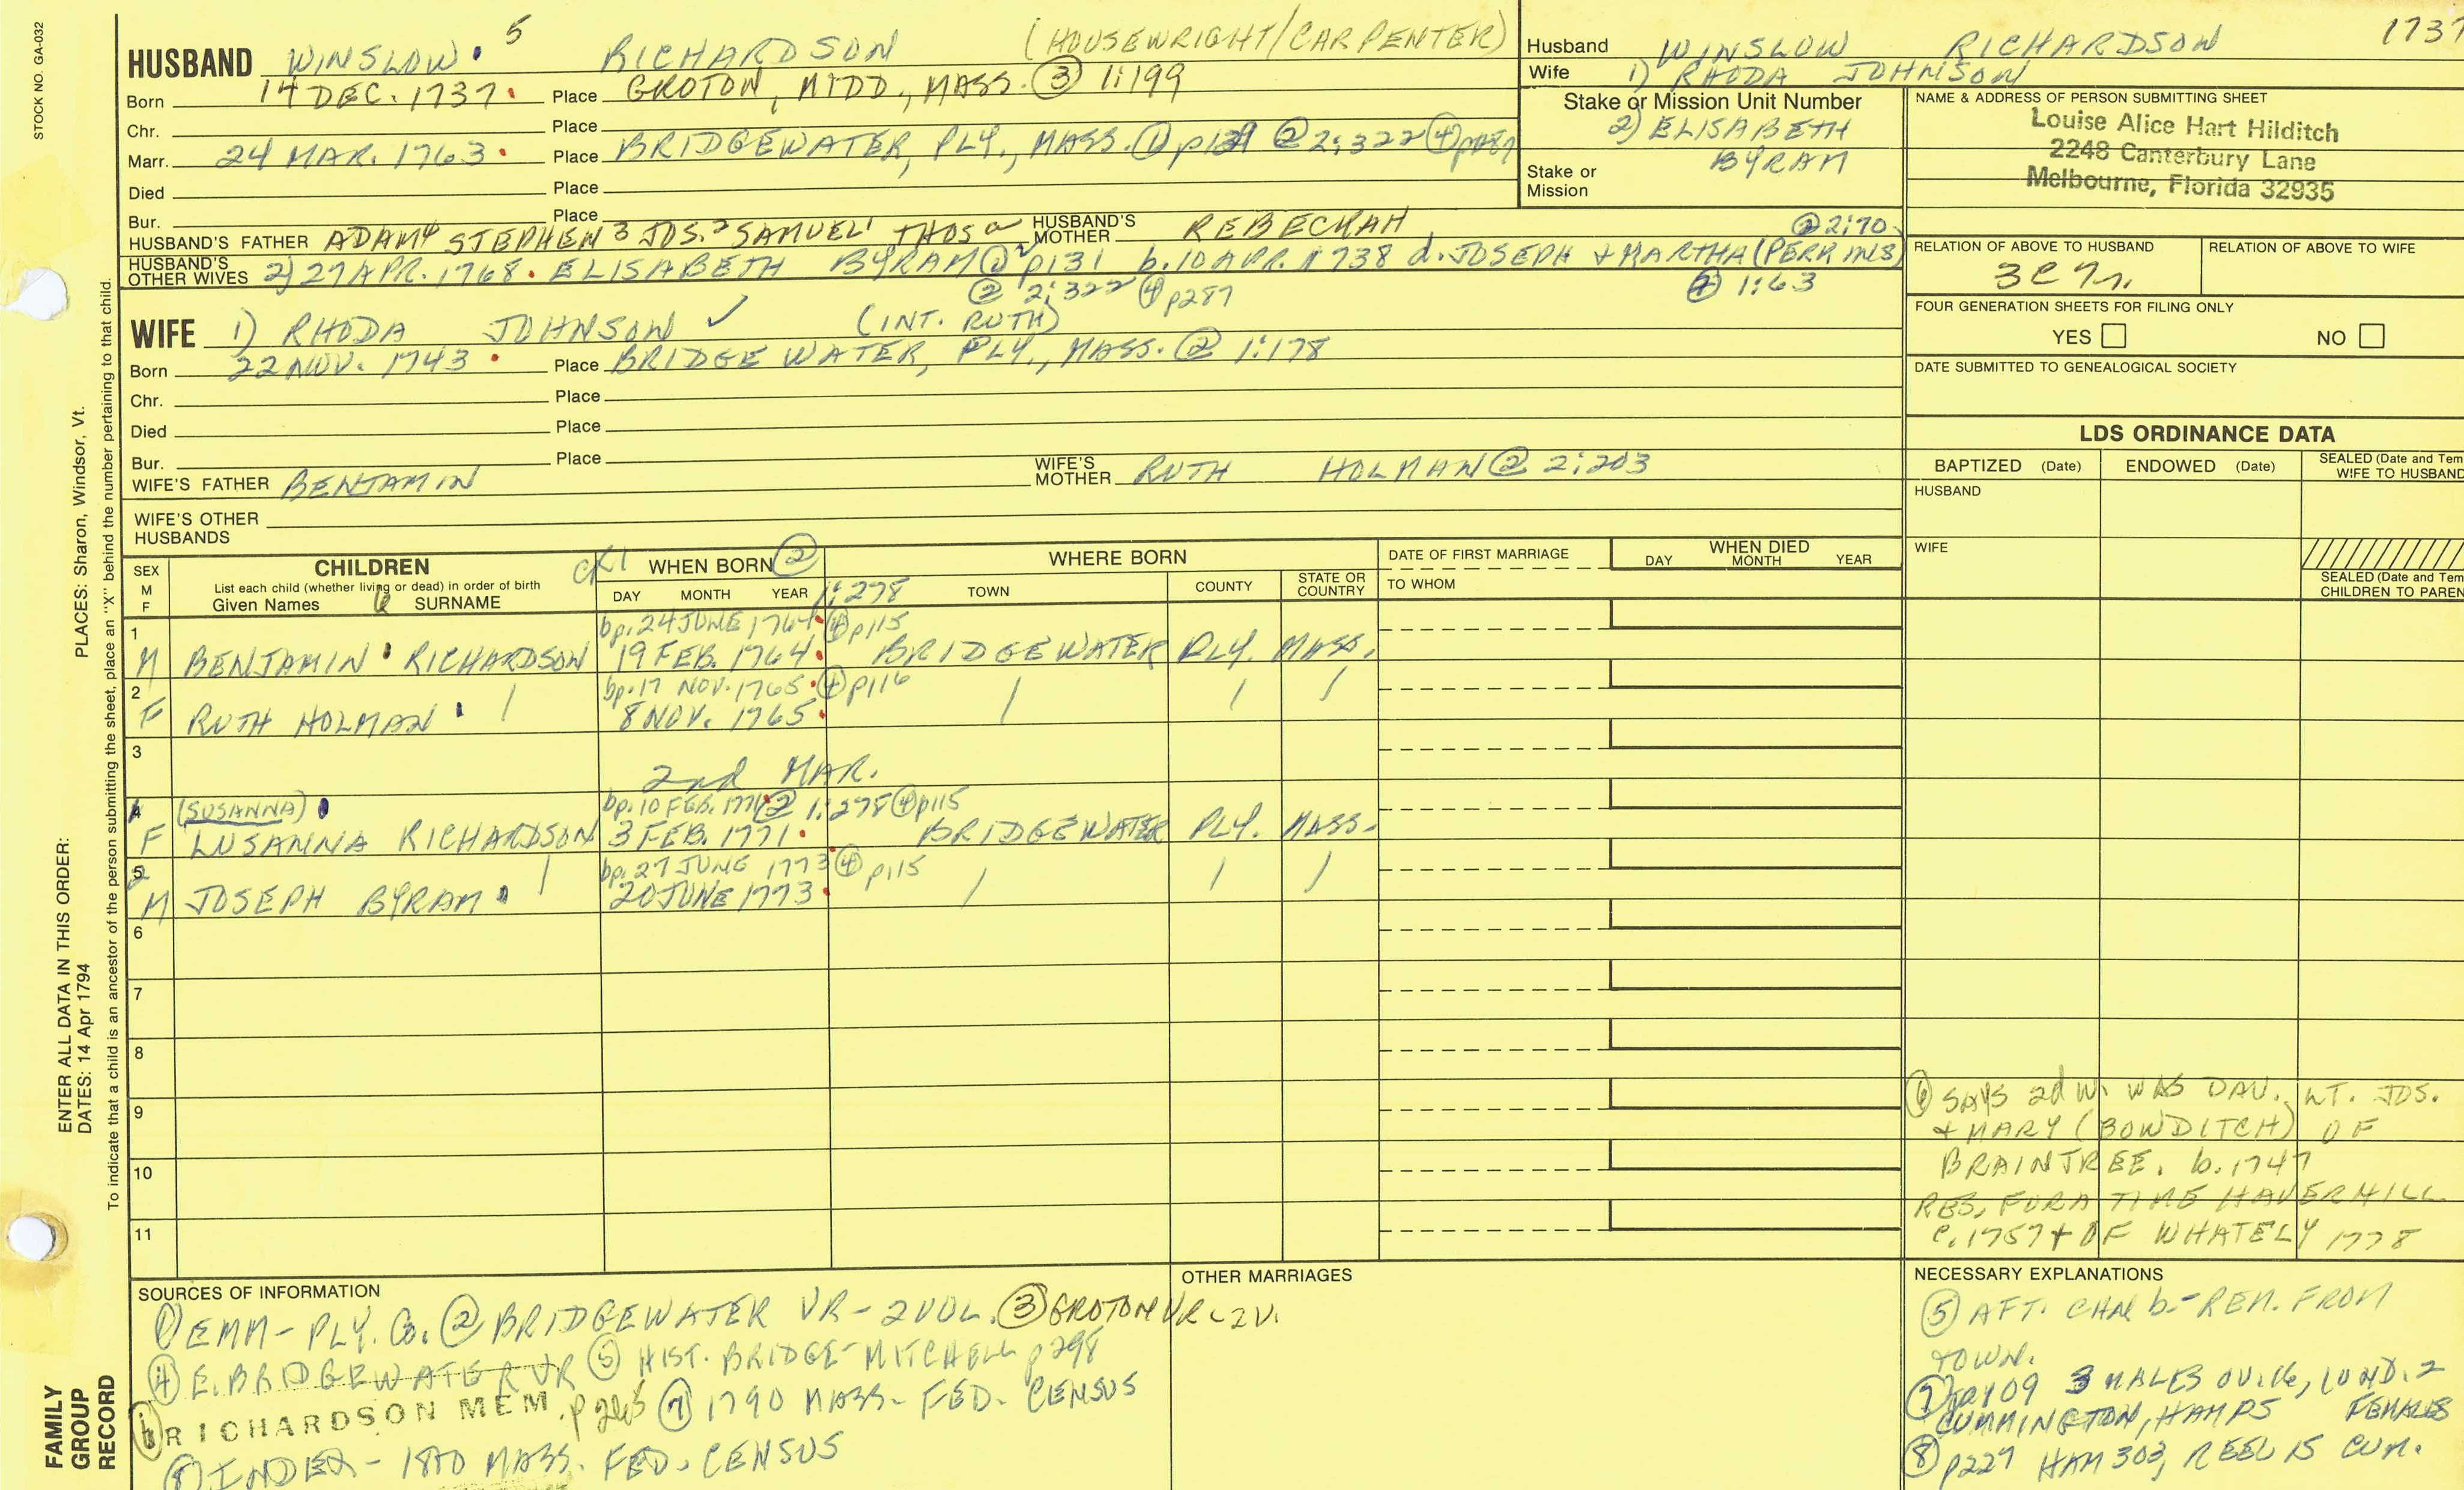 STOCK NO. GA-032
HUSBAND WINSLOW 5 RICHARDSON (HOUSEWRIGHT/CARPENTER)
Born 14 DEC. 1737. Place GROTON, MIDD., MASS. ③ 1:199
Chr. Place
Marr. 24 MAR. 1763. Place BRIDGEWATER, PLY., MASS. ① ② 2:322 ④
Died Place
Bur. Place
HUSBAND'S FATHER ADAM4 STEPHEN3 JOS.2 SAMUEL1 THOS a HUSBAND'S MOTHER REBECKAH ② 2:70
HUSBAND'S OTHER WIVES 2) 27 APR. 1768. ELISABETH BYRAM ① p131 b. 10 APR. 1738 d. JOSEPH + MARTHA (PERKINS)
② 2:322 ④ p287 1:63
Husband WINSLOW RICHARDSON 1737
Wife 1) RHODA JOHNSON
Stake or Mission Unit Number
2) ELISABETH
BYRAM
Stake or Mission
NAME & ADDRESS OF PERSON SUBMITTING SHEET
Louise Alice Hart Hilditch
2248 Canterbury Lane
Melbourne, Florida 32935
RELATION OF ABOVE TO HUSBAND RELATION OF ABOVE TO WIFE
FOUR GENERATION SHEETS FOR FILING ONLY
YES NO
DATE SUBMITTED TO GENEALOGICAL SOCIETY
WIFE 1) RHODA JOHNSON ✓ (INT. RUTH)
Born 22 NOV. 1743. Place BRIDGEWATER, PLY., MASS. ② 1:178
Chr. Place
Died Place
Bur. Place
WIFE'S FATHER BENJAMIN WIFE'S MOTHER RUTH HOLMAN ② 2:203
WIFE'S OTHER HUSBANDS
LDS ORDINANCE DATA
BAPTIZED (Date) ENDOWED (Date) SEALED (Date and Tem
WIFE TO HUSBAND
HUSBAND
WIFE
SEALED (Date and Tem
CHILDREN TO PAREN
SEX M F CHILDREN WHEN BORN ② WHERE BORN DATE OF FIRST MARRIAGE WHEN DIED
List each child (whether living or dead) in order of birth
Given Names SURNAME DAY MONTH YEAR 1:278 TOWN COUNTY STATE OR COUNTRY TO WHOM DAY MONTH YEAR
1 bp. 24 JUNE 1764. ④ p115
M BENJAMIN RICHARDSON 19 FEB. 1764. BRIDGEWATER PLY. MASS.
2 bp. 17 NOV. 1765. ④ p116 / / /
F RUTH HOLMAN / 8 NOV. 1765.
3
2nd MAR.
4 (SUSANNA) bp. 10 FEB. ② 1:278 ④ p115
F LUSANNA RICHARDSON 3 FEB. 1771. BRIDGEWATER PLY. MASS.
5 bp. 27 JUNE 1773 ④ p115 / / /
M JOSEPH BYRAM / 20 JUNE 1773.
6
7
8
9
10
11
⑥ SAYS 2d W. WAS DAU. LT. JOS.
+ MARY (BOWDITCH) OF
BRAINTREE. b. 1747
RES. FOR A TIME HAVERHILL
c. 1757 + OF WHATELY 1778
SOURCES OF INFORMATION
① EMM - PLY. Co. ② BRIDGEWATER VR - 2 VOL. ③ GROTON VR - 2V.
④ E. BRIDGEWATER VR ⑤ HIST. BRIDGE - MITCHELL p298
RICHARDSON MEM. p265 ⑦ 1790 MASS. FED. CENSUS
⑧ INDEX - 1800 MASS. FED. CENSUS
OTHER MARRIAGES
NECESSARY EXPLANATIONS
⑤ AFT. b. - REM. FROM
TOWN.
⑦ 3 MALES 2
CUMMINGTON, HAMPS FEMALES
⑧ p227 HAM 303, REEL 15 CUM.
PLACES: Sharon, Windsor, Vt.
ENTER ALL DATA IN THIS ORDER:
DATES: 14 Apr 1794
To indicate that a child is an ancestor of the person submitting the sheet, place an "X" behind the number pertaining to that child.
FAMILY
GROUP
RECORD